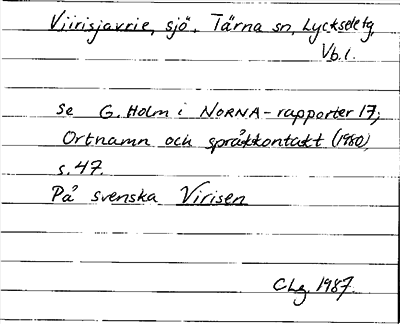 Vjirisjavrie, sjö, Tärna sn, Lycksele tg,
Vb. l.
se G. Holm i NORNA-rapporter 17;
Ortnamn och språkkontakt (1980),
s. 47.
På svenska Virisen
CLg. 1987.